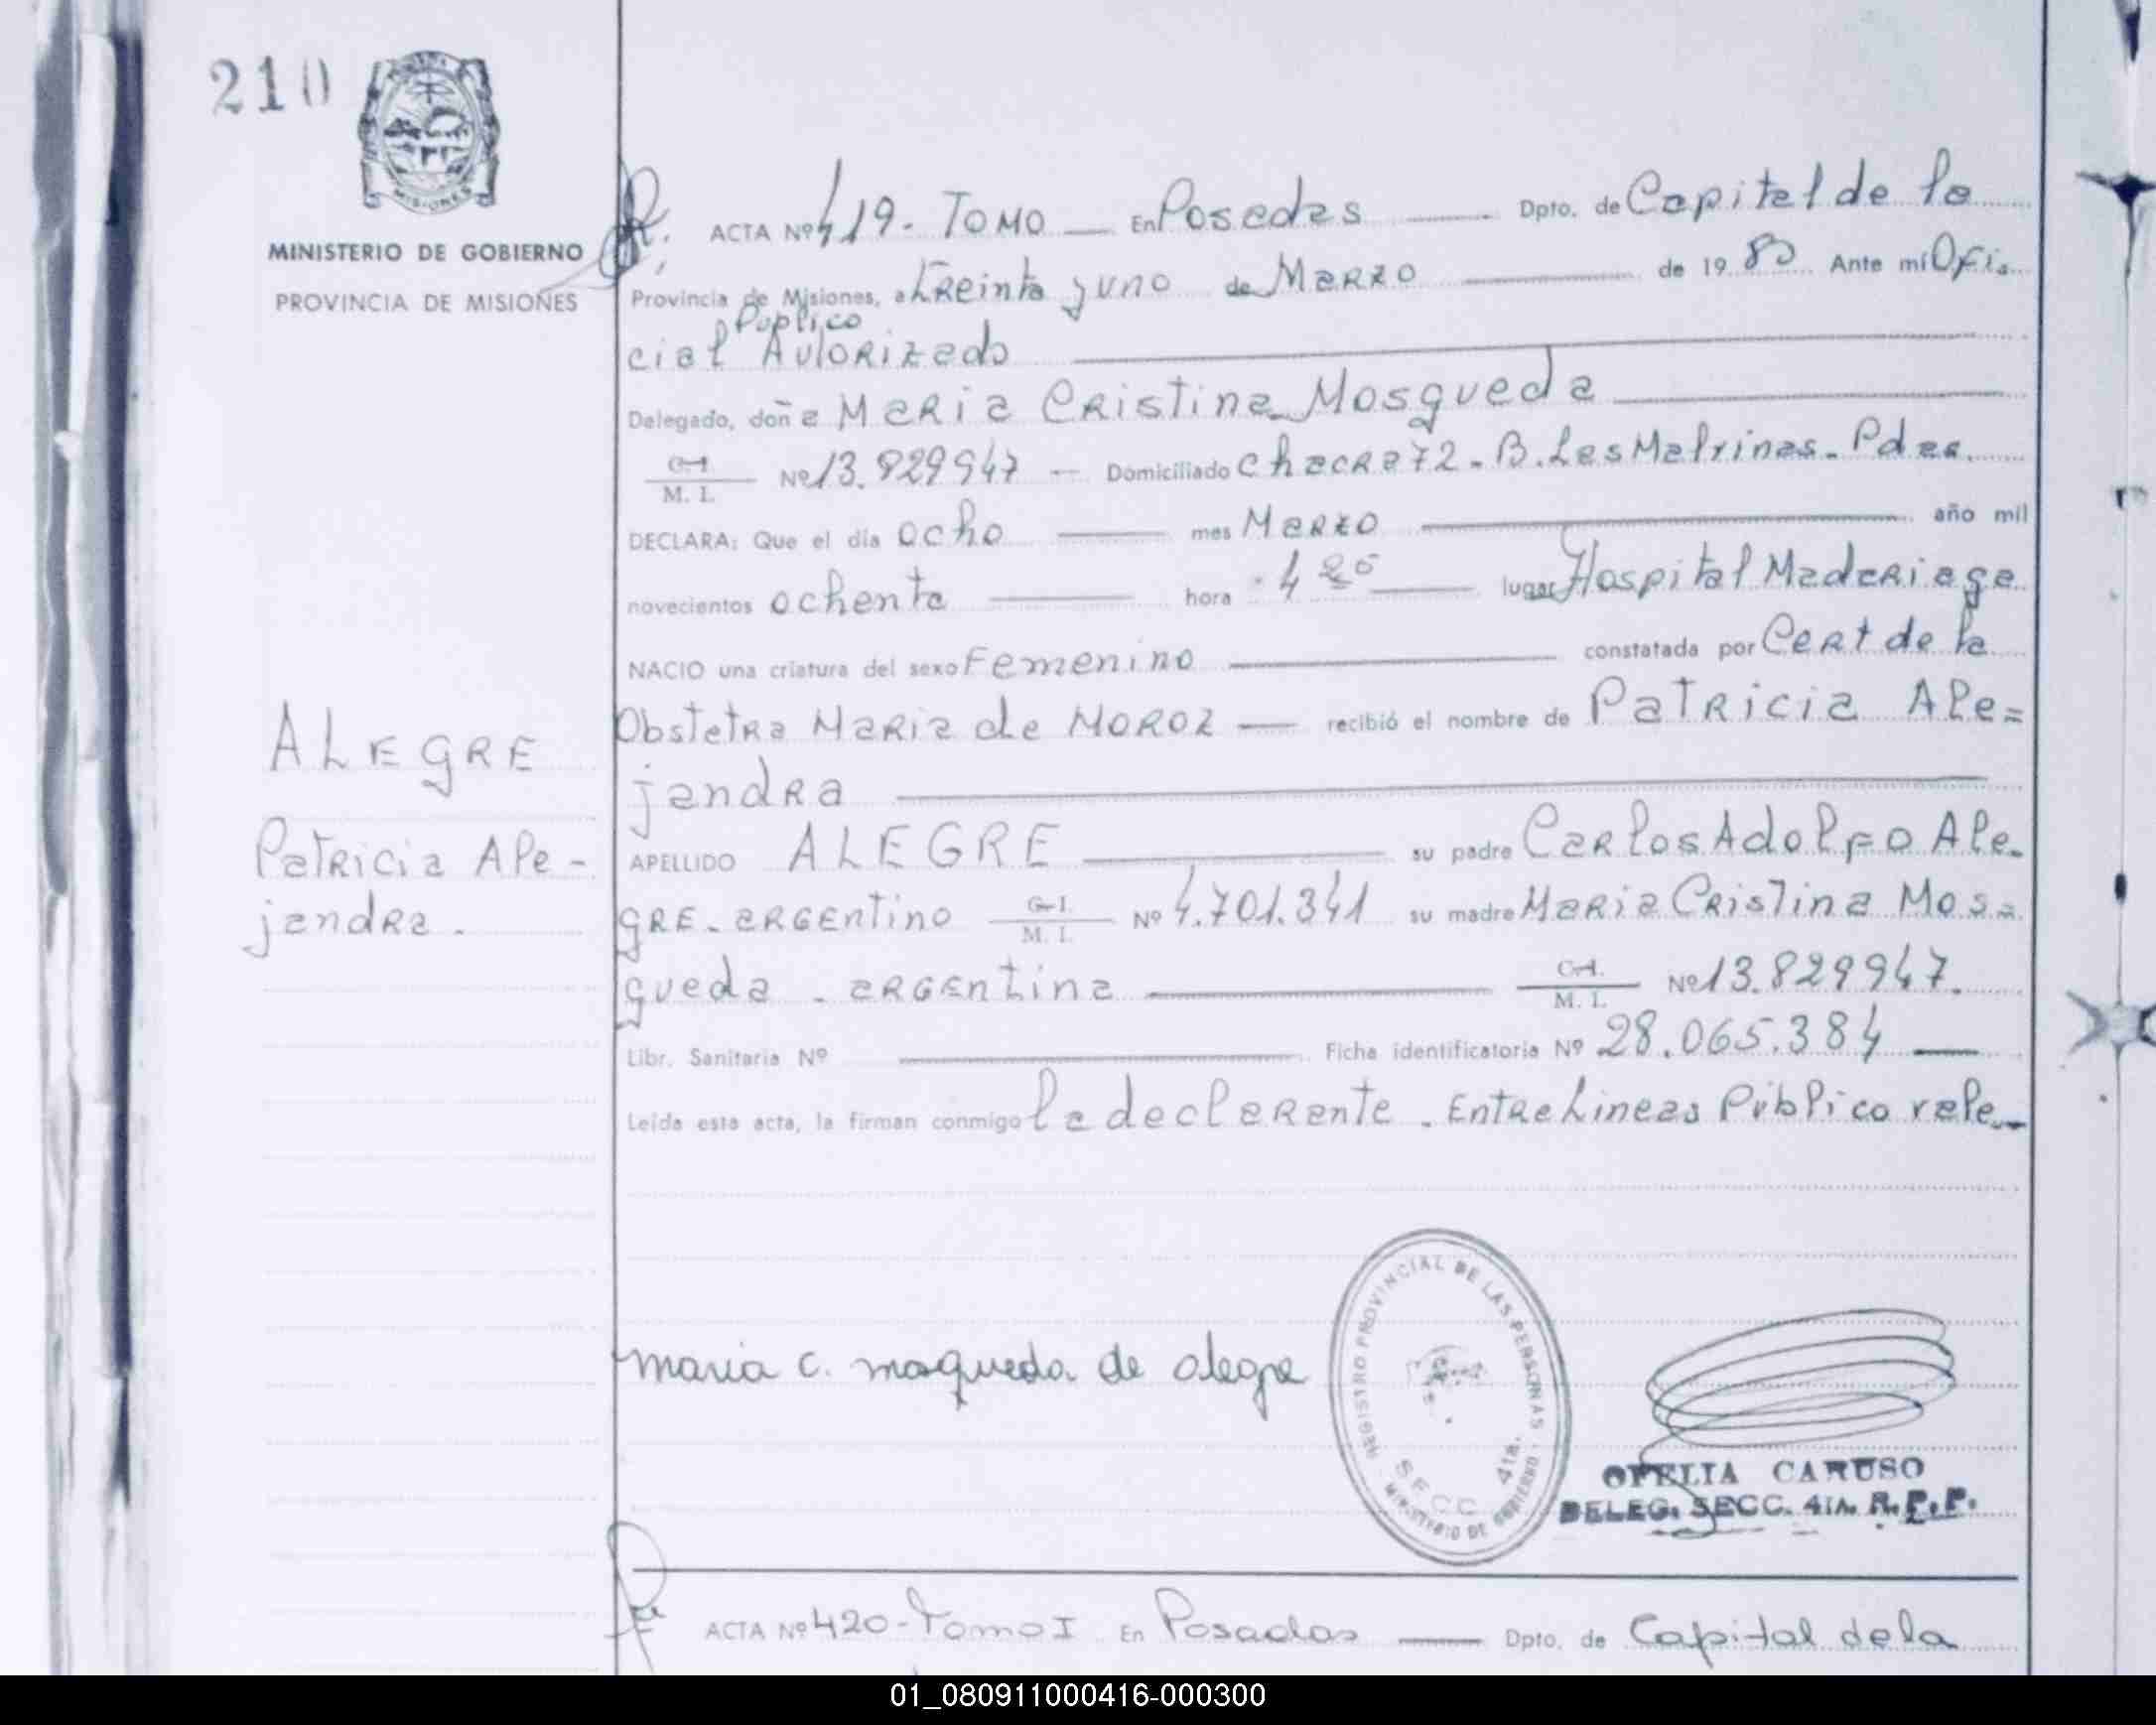 210
MISIONES
MINISTERIO DE GOBIERNO
PROVINCIA DE MISIONES
ACTA Nº 419- TOMO — En Posadas — Dpto. de Capital de la
Provincia de Misiones, a treinta y uno de Marzo — de 1980 Ante mí Ofi-
Público
cial Autorizado
Delegado, doña Maria Cristina Mosqueda
C. I.
M. I. Nº 13.829947 — Domiciliado Chacra 72 - B. Las Malvinas - Pdas.
DECLARA: Que el día ocho — mes Marzo — año mil
novecientos ochenta — hora 4 20 — lugar Hospital Madariaga
NACIO una criatura del sexo Femenino — constatada por Cert de la
Obstetra Maria de MOROZ — recibió el nombre de Patricia Ale=
jandra
ALEGRE
Patricia Ale-
jandra.
APELLIDO ALEGRE — su padre Carlos Adolfo Ale-
gre - argentino C. I. M. I. Nº 4.701.341 su madre Maria Cristina Mos=
queda - argentina — C. I. M. I. Nº 13.829947.
Libr. Sanitaria Nº — Ficha identificatoria Nº 28.065.384 —
Leída esta acta, la firman conmigo la declarante. Entre Lineas Público vale-
maria c. mosqueda de alegre
REGISTRO PROVINCIAL DE LAS PERSONAS
SECC. 4ta.
MINISTERIO DE GOBIERNO
OFELIA CARUSO
DELEG. SECC. 4TA. R.P.P.
ACTA Nº 420- Tomo I En Posadas — Dpto. de Capital de la
01_080911000416-000300